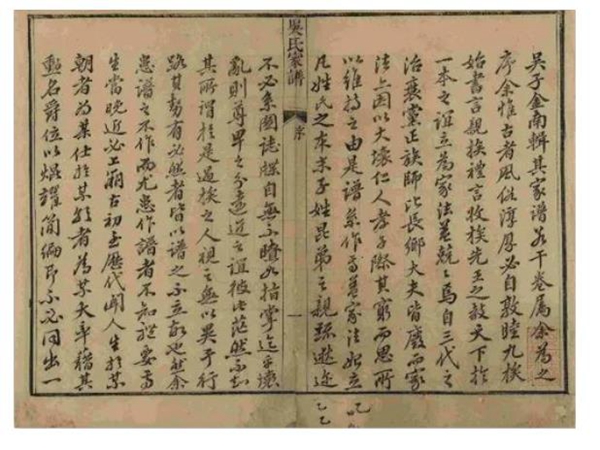 吴子金南輯其家譜若干卷属余為之
序余惟古者風俗淳厚必自敦睦九族
始書言親族禮言收族先王之教天下於
一本之誼立為家法甚兢兢焉自三代之
治衰黨正族師比長鄉大夫皆廢而家
法上因以大壞仁人孝子際其窮而思所
以維持之由是譜系作焉家法始立
凡姓氏之本末子姓昆弟之親疎
吳氏家譜
序
一
不必系圖誌牒自無不瞭如指掌迨乎壞
亂則尊卑之分遠近之誼彼此茫然不知
其所謂於是過族之人視之無以異于行
路其勢有必然者皆以譜之不立故也然余
患譜之不作而尤患作譜者不知體要焉
生當晚近必上溯古初至歷代聞人生於某
朝者為某仕於某者為某大率稽其
勳名爵位以焜耀簡編即不必同出一